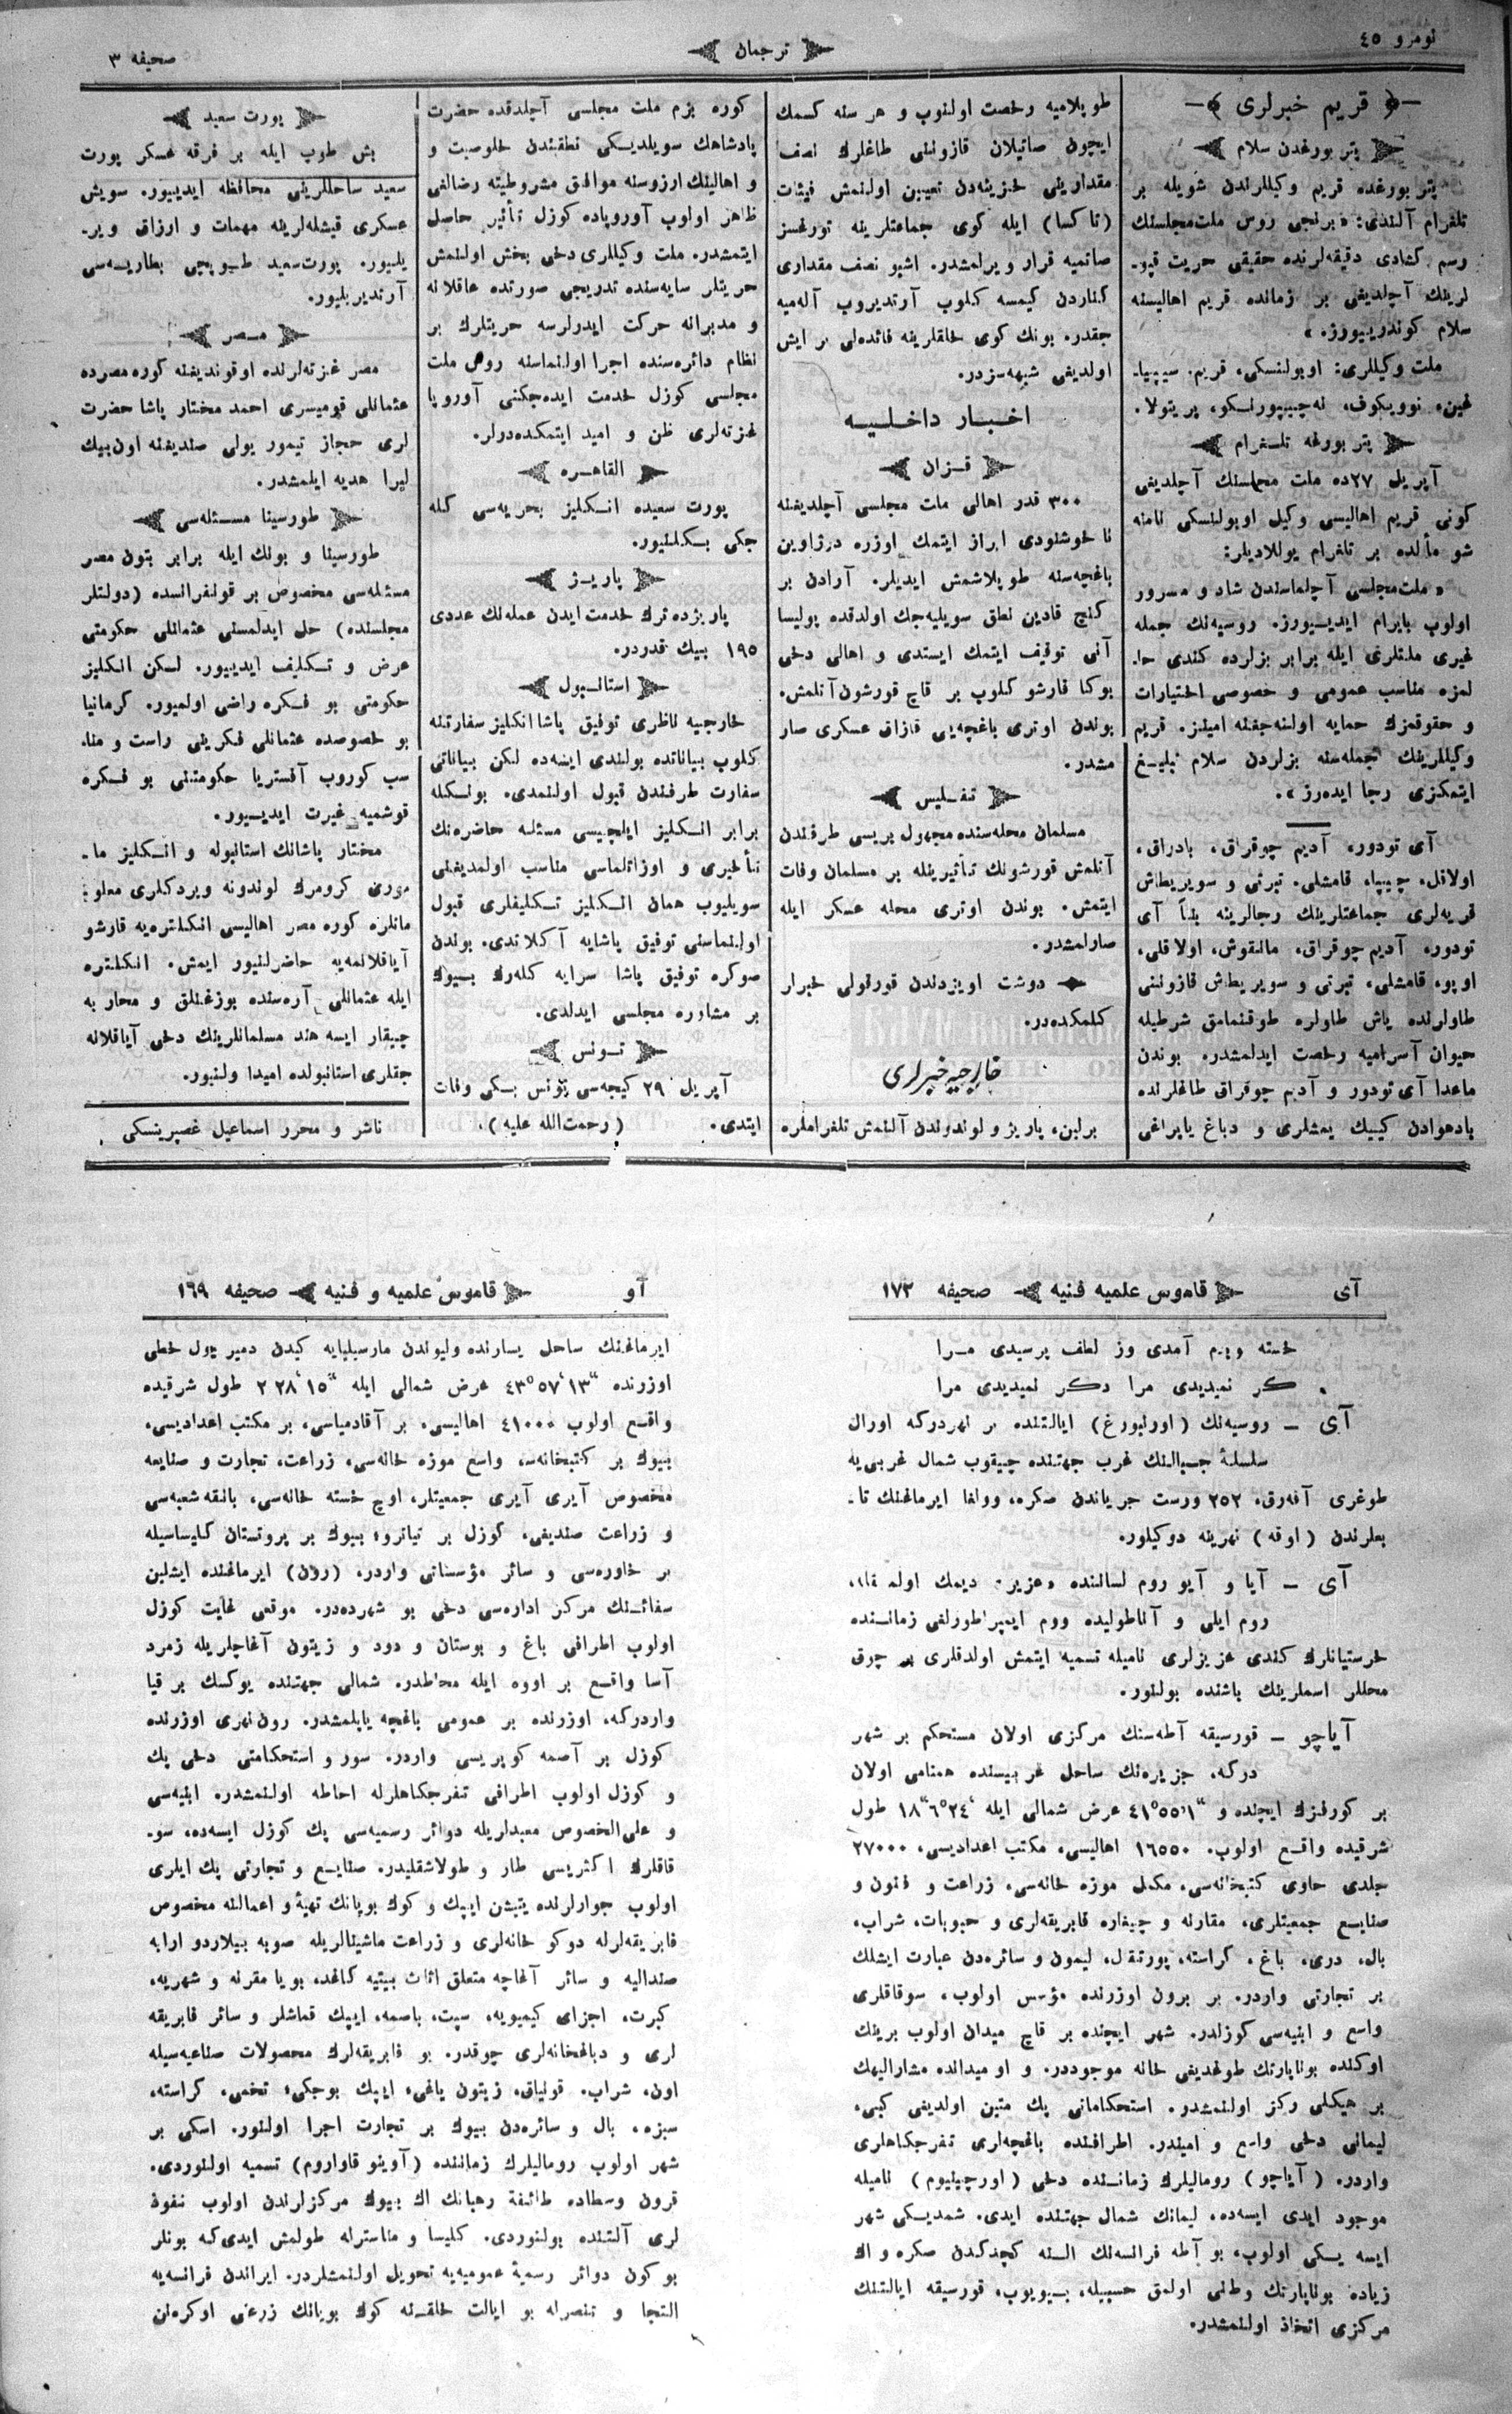 نومرو ٤٥
ترجمان
صحیفه ٣
قریم خبرلری
پتربورغدن سلام
پتربورغده قریم وکیللرندن شویله بر
تلغرام آلندی: «برنجی روس ملت مجلسنك
رسم کشادی دقیقه‌لرنده حقیقی حریت قپو-
لرینك آچلدیغی بر زمانده قریم اهالیسنه
سلام کوندرییورز.»
ملت وکیللری: اوبولنسکی، قریم،
نوویکوف، نه‌چیپورنسکو، پریتولا.
پتربورغه تلغرام
آپریل ٢٧ده ملت مجلسنك آچلدیغی
کونی قریم اهالیسی وکیل اوبولنسکی نامنه
شو مألده بر تلغرام یوللادیلر:
«ملت مجلسی آچلماسندن شاد و مسرور
اولوب بایرام ایدییورز. روسیه‌نك جمله
غیری ملتلری ایله برابر بزلرده کندی حا-
لمزه مناسب عمومی و خصوصی اختیارات
و حقوقمزك حمایه اولنه‌جغنه امینز. قریم
وکیللرینك جمله‌سنه بزلردن سلام تبلیغ
ایتمکزی رجا ایده‌رز».
آی تودور، آدیم چوقراق، بادراق،
اولاقلی، چیپیا، قامشلی، تبرتی و سویریطاش
قریه‌لری جماعتلرینك رجالرینه بناً آی
تودور، آدیم چوقراق، مانقوش، اولاقلی،
اوبو، قامشلی، تبرتی و سویریطاش قازوننی
طاولرنده یاش طاولره طوقنمامق شرطیله
حیوان آسرامیه رخصت ایدلمشدر. بوندن
ماعدا آی تودور و آدیم چوقراق طاغلرنده
بادهوادن کییك یمشلری و دباغ یاپراغی
طوپلامیه رخصت اولنوب و هر سنه کسمك
ایچون صاتیلان قازوننی طاغلرك نصف
مقدارینی خزینه‌دن تعیین اولنمش فیئات
(تاکسا) ایله کوی جماعتلرینه تورغسز
صاتمیه قرار ویرلمشدر. اشبو نصف مقداری
کناردن کیمسه کلوب آرتدیروب آله‌میه
جقدر. بونك کوی خلقلرینه فائده‌لی بر ایش
اولدیغی شبهه‌سزدر.
اخبار داخلیه
قزان
٣٠٠ قدر اهالی ملت مجلسی آچلدیغنه
ناخوشنودی ابراز ایتمك اوزره درژاوین
باغچه‌سنه طوپلاشمش ایدیلر. آرادن بر
کنج قادین نطق سویلیه‌جك اولدقده پولیسا
آنی توقیف ایتمك ایستدی و اهالی دخی
بوکا قارشو کلوب بر قاچ قورشون آتلمش.
بوندن اوتری باغچه‌یی قازاق عسکری صار
مشدر.
تفلیس
مسلمان محله‌سنده مجهول بریسی طرفندن
آتلمش قورشونك تأثیریله بر مسلمان وفات
ایتمش. بوندن اوتری محله عسکر ایله
صارلمشدر.
دوشت اویزدندن قورقولی خبرلر
کلمکده‌در.
خارجیه خبرلری
برلین، پاریز و لوندوندن آلنمش تلغرافلره
کوره بزم ملت مجلسی آچلدقده حضرت
پادشاهك سویلدیکی نطقندن خلوصیت و
و اهالینك ارزوسنه موافق مشروطیته رضالغی
ظاهر اولوب آوروپاده کوزل تأثیر حاصل
ایتمشدر. ملت وکیللری دخی بخش اولنمش
حریتلر سایه‌سنده تدریجی صورتده عاقلانه
و مدبرانه حرکت ایدرلرسه حریتلرك بر
نظام دائره‌سنده اجرا اولنماسنه روس ملت
مجلسی کوزل خدمت ایده‌جکنی آوروپا
غزته‌لری ظن و امید ایتمکده‌درلر.
القاهره
پورت سعیده انکلیز بحریه‌سی کله
جکی بکلنیور.
پاریز
پاریزده ترك خدمت ایدن عمله‌نك عددی
١٩٥ بیك قدردر.
استانبول
خارجیه ناظری توفیق پاشا انکلیز سفارتنه
کلوب بیاناتده بولندی ایسه‌ده لکن بیاناتی
سفارت طرفندن قبول اولنمدی. بونکله
برابر انکلیز ایلچیسی مسئله حاضره‌نك
تأخیری و اوزاتلماسی مناسب اولمدیغنی
سویلیوب همان انکلیز تکلیفلری قبول
اولنماسنی توفیق پاشایه آکلاتدی. بوندن
صوکره توفیق پاشا سرایه کله‌رك بیوك
بر مشاوره مجلسی ایدلدی.
تونس
آپریل ٢٩ کیجه‌سی تونس بکی وفات
ایتدی. (رحمت‌الله علیه).
پورت سعید
بش طوپ ایله بر فرقه عسکر پورت
سعید ساحللرینی محافظه ایدییور. سویش
عسکری قیشله‌لرینه مهمات و ارزاق ویر-
یلیور. پورت‌سعید طوپچی بطاریه‌سی
آرتدیریلیور.
مصر
مصر غزته‌لرنده اوقوندیغنه کوره مصرده
عثمانلی قومیسری احمد مختار پاشا حضرت
لری حجاز تیمور یولی صندیغنه اون بیك
لیرا هدیه ایلمشدر.
طورسینا مسئله‌سی
طورسینا و بونك ایله برابر بتون مصر
مسئله‌سی مخصوص بر قونفرانسده (دولتلر
مجلسنده) حل ایدلمسنی عثمانلی حکومتی
عرض و تکلیف ایدییور. لکن انکلیز
حکومتی بو فکره راضی اولمیور. کرمانیا
بو خصوصده عثمانلی فکرینی راست و منا-
سب کوروب آفستریا حکومتنی بو فکره
قوشمیه غیرت ایدییور.
مختار پاشانك استانبوله و انکلیز ما-
موری کرومرك لوندونه ویردکلری معلو-
ماتلره کوره مصر اهالیسی انکلتره‌یه قارشو
آیاقلانمه‌یه حاضرلنیور ایمش. انکلتره
ایله عثمانلی آره‌سنده بوزغنلق و محاربه
چیقار ایسه هند مسلمانلرینك دخی آیاقلانه
جقلری استانبولده امید اولنیور.
ناشر و محرر اسماعیل غصپرینسکی
آی
قاموس علمیه فنیه
صحیفه ١٧٢
خسته ویم آمدی وز لطف پرسیدی مرا
کر نمیدیدی مرا دکر نمیدیدی مرا
آی – روسیه‌نك (اورنبورغ) ایالتنده بر نهردرکه اورال
سلسلۀ جبالنك غرب جهتنده چیقوب شمال غربی‌یه
طوغری آقه‌رق، ٢٥٢ ورست جریاندن صکره، وولغا ایرماغنك تا-
بعلرندن (اوفه) نهرینه دوکیلور.
آی – آیا و آیو روم لساننده «عزیز» دیمك اولمغله،
روم ایلی و آناطولیده روم ایمپراطورلغی زماننده
خرستیانلرك کندی عزیزلری نامیله تسمیه ایتمش اولدقلری بر چوق
محللر اسملرینك باشنده بولنور.
آیاچو – قورسیقه آطه‌سنك مرکزی اولان مستحکم بر شهر
درکه، جزیره‌نك ساحل غربیسنده همنامی اولان
بر کورفزك ایچنده و ٤١°٥٥'١" عرض شمالی ایله ٦°٢٤'١٨" طول
شرقیده واقع اولوب، ١٦٥٥٠ اهالیسی، مکتب اعدادیسی، ٢٧٠٠٠
جلدی حاوی کتبخانه‌سی، مکمل موزه خانه‌سی، زراعت و فنون و
صنایع جمعیتلری، مقارنه و چیغاره فابریقه‌لری و حبوبات، شراب،
بال، دری، یاغ، کراسته، پورتقال، لیمون و سائره‌دن عبارت ایشلك
بر تجارتی واردر. بر برون اوزرنده مؤسس اولوب، سوقاقلری
واسع و ابنیه‌سی کوزلدر. شهر ایچنده بر قاچ میدان اولوب برینك
اوکنده بوناپارتك طوغدیغی خانه موجوددر. و او میدانده مشارالیهك
بر هیکلی رکز اولنمشدر. استحکاماتی پك متین اولدیغی کبی،
لیمانی دخی واسع و امیندر. اطرافنده باغچه‌لری تفرجکاهلری
واردر. (آیاچو) رومالیلرك زماننده دخی (اورچینیوم) نامیله
موجود ایدی ایسه‌ده، لیمانك شمال جهتنده ایدی. شمدیکی شهر
ایسه یکی اولوب، بو آطه فرانسه‌نك النه کچدکدن صکره و اك
زیاده بوناپارتك وطنی اولمق حسبیله، بیویوب، قورسیقه ایالتنك
مرکزی اتخاذ اولنمشدر.
آو
قاموس علمیه و فنیه
صحیفه ١٦٩
ایرماغنك ساحل یسارنده و لیوندن مارسیلیایه کیدن دمیر یول خطی
اوزرنده ٤٣°٥٧'١٣" عرض شمالی ایله ٢ ٢٨'١٥" طول شرقیده
واقع اولوب ٤١٠٠٠ اهالیسی، بر آقادمیاسی، بر مکتب اعدادیسی،
بیوك بر کتبخانه‌سی، واسع موزه خانه‌سی، زراعت، تجارت و صنایعه
مخصوص آیری آیری جمعیتلر، اوچ خسته خانه‌سی، بانقه شعبه‌سی
و زراعت صندیغی، کوزل بر تیاترو، بیوك بر پروتستان کلیساسیله
بر خاوره‌سی و سائر مؤسساتی واردر، (رون) ایرماغنده ایشلین
سفائنك مرکز اداره‌سی دخی بو شهرده‌در. موقعی غایت کوزل
اولوب اطرافی باغ و بوستان و دود و زیتون آغاچلریله زمرد
آسا واقع بر اووه ایله محاطدر. شمالی جهتنده یوکسك بر قیا
واردرکه، اوزرنده بر عمومی باغچه یاپلمشدر. رون نهری اوزرنده
کوزل بر آصمه کوپریسی واردر. سور و استحکامتی دخی پك
و کوزل اولوب اطرافی تفرجکاهلرله احاطه اولنمشدر. ابنیه‌سی
و علی‌الخصوص معبدلریله دوائر رسمیه‌سی پك کوزل ایسه‌ده، سو-
قاقلرك اکثریسی طار و طولاشقلیدر. صنایع و تجارتی پك ایلری
اولوب جوارلرنده یتیشن ایپك و کوك بویانك تهیه و اعمالنه مخصوص
فابریقه‌لرله دوکوخانه‌لری و زراعت ماشینالریله صوبه بیلاردو ارابه
صندالیه و سائر آغاچه متعلق اثاث بیتیه کاغد، بویا مقرنه و شهریه،
کبرت، اجزای کیمیویه، سپت، باصمه، ایپك قماشلر و سائر فابریقه
لری و دباغخانه‌لری چوقدر. بو فابریقه‌لرك محصولات صناعیه‌سیله
اون، شراب، قونیاق، زیتون یاغی، ایپك بوجکی، تخمی، کراسته،
سبزه، بال و سائره‌دن بیوك بر تجارت اجرا اولنور. اسکی بر
شهر اولوب رومالیلرك زماننده (آوینو قاواروم) تسمیه اولنوردی.
قرون وسطاده طائفۀ رهبانك اك بیوك مرکزلرندن اولوب نفوذ
لری آلتنده بولنوردی. کلیسا و مناسترله طولمش ایدی که بونلر
بو کون دوائر رسمیۀ عمومیه‌یه تحویل اولنمشلردر. ایراندن فرانسه‌یه
التجا و تنصرله بو ایالت خلقنه کوك بویانك زرعنی اوکره‌تن